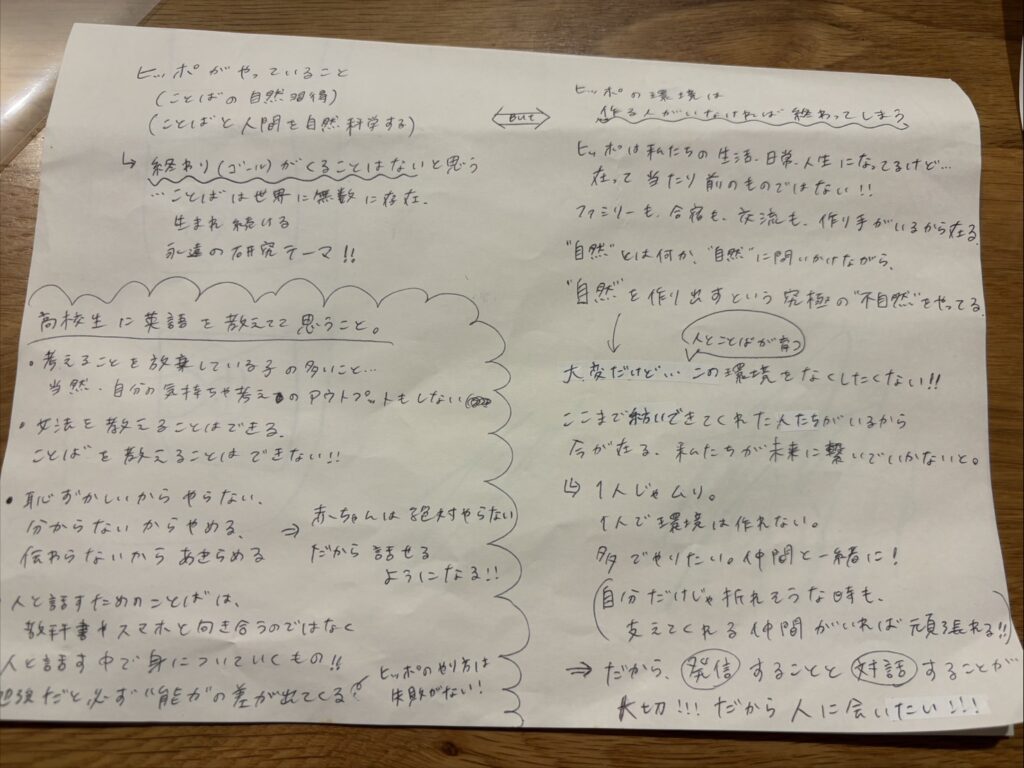 ヒッポがやっていること
(ことばの自然習得)
(ことばと人間を自然科学する)
↳ 終わり(ゴール)がくることはないと思う
…ことばは世界に無数に存在.
生まれ続ける
永遠の研究テーマ!!
高校生に英語を教えてて思うこと。
・考えることを放棄している子の多いこと…
当然・自分の気持ちや考えのアウトプットもしない
・文法を教えることはできる.
ことばを教えることはできない!!
・恥ずかしいからやらない、
分からないからやめる、
伝わらないからあきらめる
⇒ 赤ちゃんは絶対やらない
だから話せる
ようになる!!
人と話すためのことばは、
教科書やスマホと向き合うのではなく
人と話す中で身についていくもの!!
勉強だと必ず"能力"の差が出てくる?
ヒッポのやり方は
失敗がない!
but
ヒッポの環境は
作る人がいなければ終わってしまう
ヒッポは私たちの生活、日常、人生になってるけど…
在って当たり前のものではない!!
ファミリーも、合宿も、交流も、作り手がいるから在る.
"自然"とは何か、"自然"に問いかけながら、
"自然"を作り出すという究極の"不自然"をやってる.
人とことばが育つ
大変だけど… この環境をなくしたくない!!
ここまで紡いできてくれた人たちがいるから
今が在る、私たちが未来に繋いでいかないと。
↳ 1人じゃムリ。
1人で環境は作れない。
多でやりたい。仲間と一緒に!
(自分だけじゃ折れそうな時も、
支えてくれる仲間がいれば頑張れる!!)
⇒ だから、発信することと対話することが
大切!!! だから人に会いたい!!!